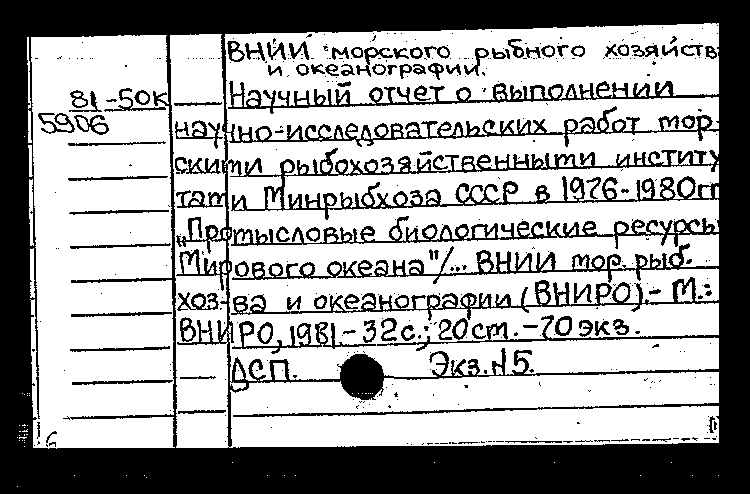 ВНИИ морского рыбного хозяйств
и океанографии.
81-50к Научный отчет о выполнении
5906 научно-исследовательских работ мор-
скими рыбохозяйственными институ
тами Минрыбхоза СССР в 1976-1980гг
„Промысловые биологические ресурсы
Мирового океана"/... ВНИИ мор. рыб.
хоз-ва и океанографии (ВНИРО).- М.:
ВНИРО, 1981.- 32с.; 20ст. -70экз.
ДСП. Экз.№5.
6